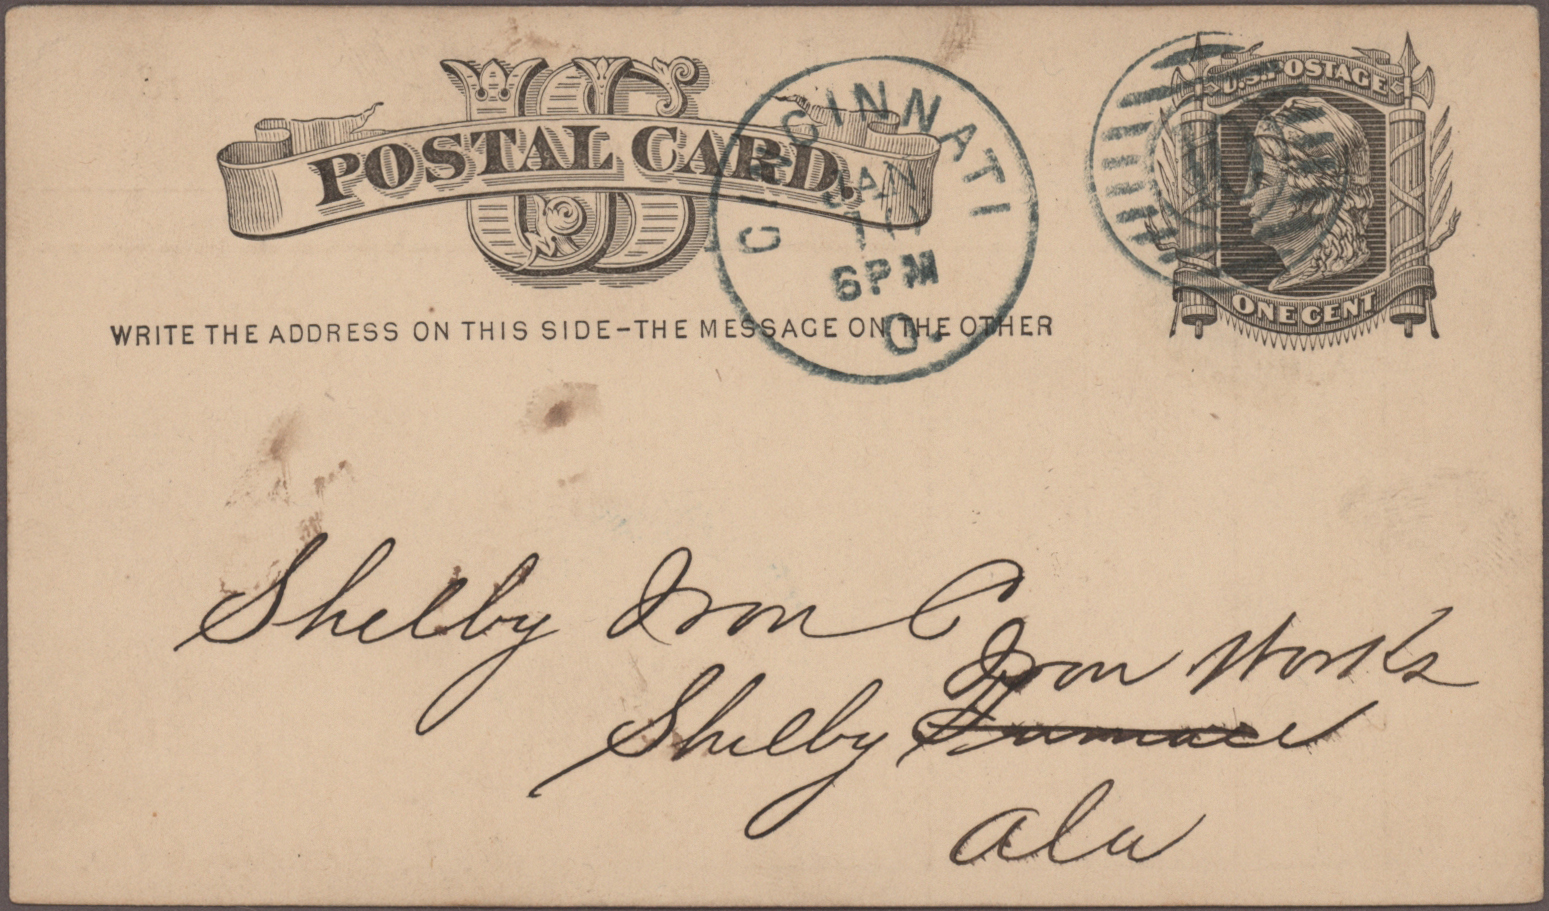 US
POSTAL CARD.
U.S. POSTAGE
ONE CENT
CINCINNATI
JAN
6 PM
O.
WRITE THE ADDRESS ON THIS SIDE-THE MESSAGE ON THE OTHER
Shelby Iron C
Iron Works
Shelby Furnace
Ala